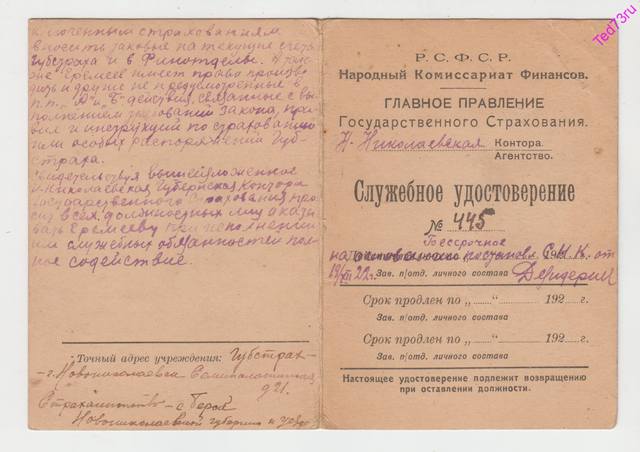 ключенным страхованиям
вносить таковые на текущие счета
Губстраха и в Финотделы. В
Еремеев имеет право произво
дить и другие не предусмотренные в
п.п. "А" и "Б" действия, связанные с вы
полнением законов, пра
вил и инструкций по страхованию
или особых распоряжений Губ-
страха.
Свидетельствуя вышеизложенное
Н-Николаевская Губернская Контора
Государственного Страхования про
сит всех должностных лиц оказы
вать Еремееву при исполнении
им служебных обязанностей пол
ное содействие.
Точный адрес учреждения: Губстрах
г. Новониколаевск
д 21.
Страхагентство - с. Берск
Новониколаевской губернии и уезда
Р. С. Ф. С. Р.
Народный Комиссариат Финансов.
ГЛАВНОЕ ПРАВЛЕНИЕ
Государственного Страхования.
Н-Николаевская Контора.
Агентство.
Служебное удостоверение
№ 445
Бессрочное
на основании постановл. С.Н.К. от
22 г.
Зав. п/отд. личного состава
Срок продлен по „......“ 192 г.
Зав. п/отд. личного состава
Срок продлен по „......“ 192 г.
Зав. п/отд. личного состава
Настоящее удостоверение подлежит возвращению
при оставлении должности.
Ted73ru